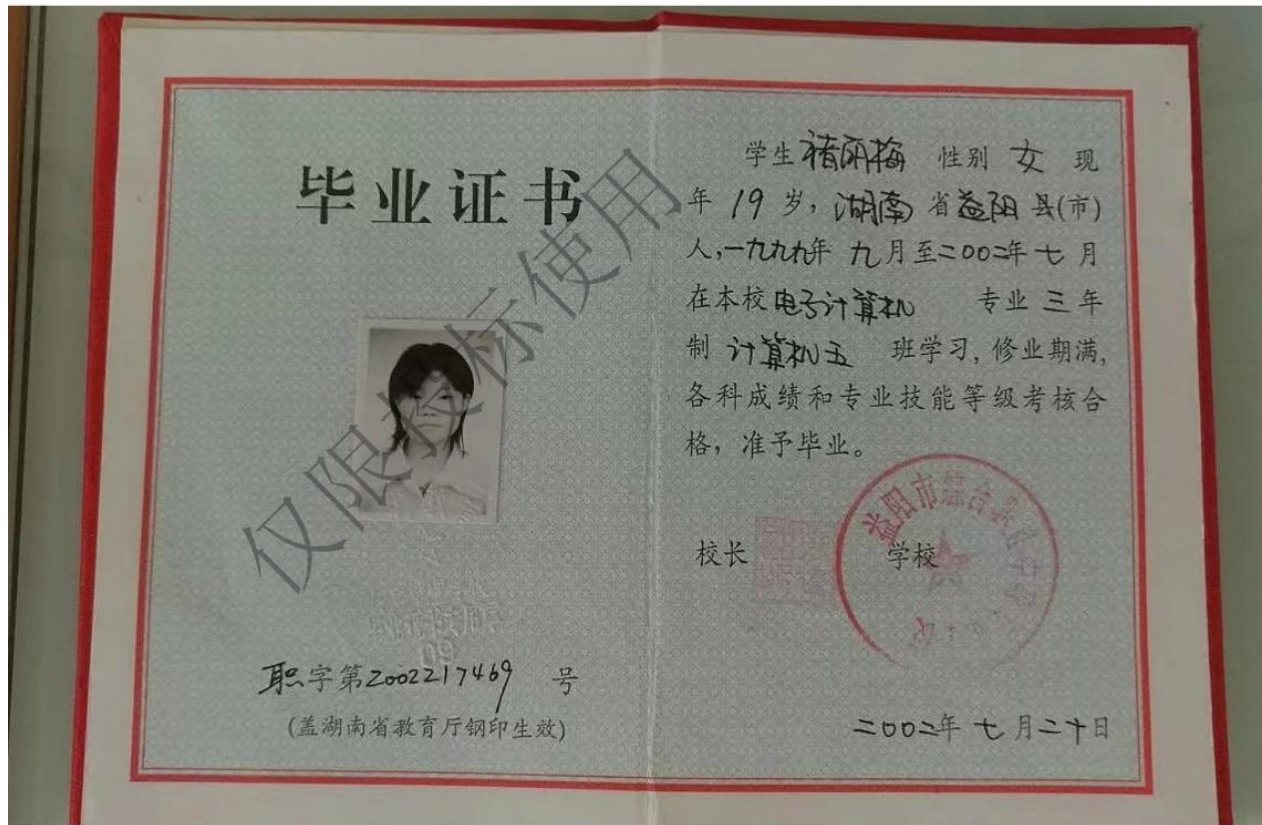 毕业证书
职字第2002217469 号
(盖湖南省教育厅钢印生效)
学生褚丽梅 性别 女 现
年 19 岁, 湖南 省益阳 县(市)
人,一九九九年 九月至二00二年 七 月
在本校电子计算机 专业 三 年
制 计算机五 班学习, 修业期满,
各科成绩和专业技能等级考核合
格, 准予毕业。
校长 学校
益阳市综合职业中专
二00二年 七 月二十日
仅限投标使用